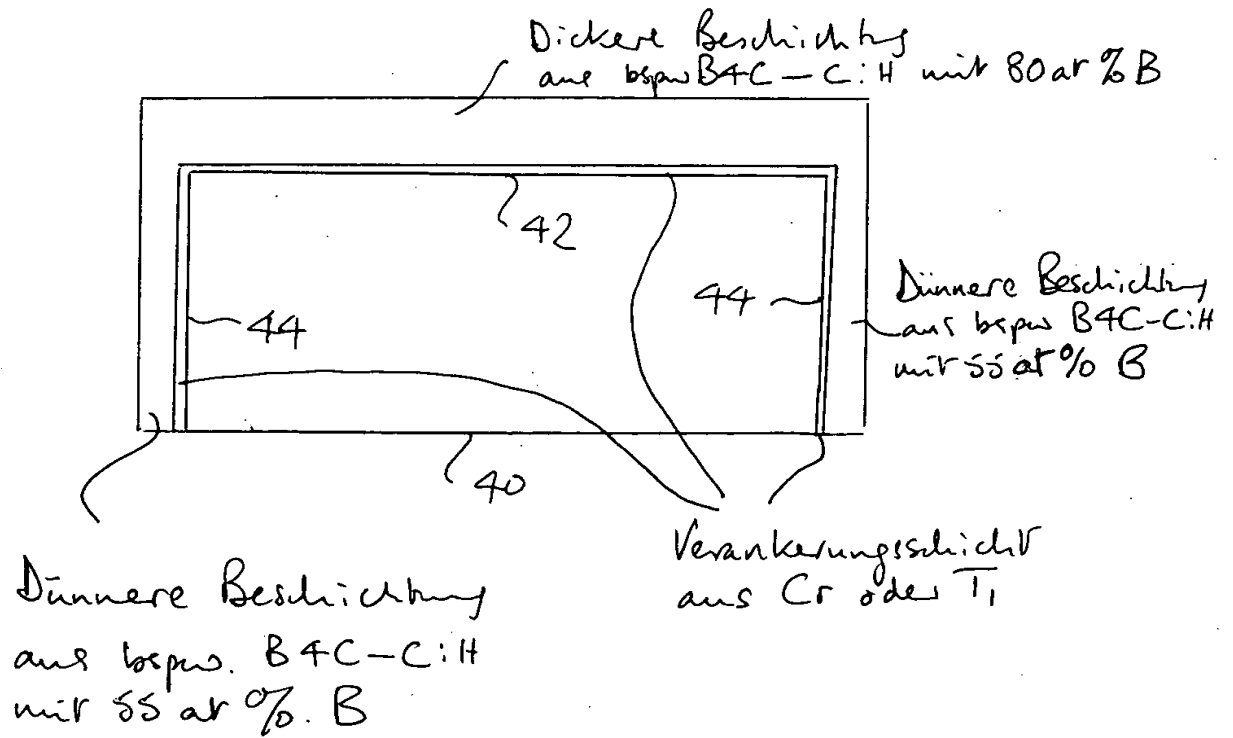 Dickere Beschichtung
aus bspw B4C – C:H mit 80 at % B
42
44
44
Dünnere Beschichtung
aus bspw B4C-C:H
mit 55 at % B
40
Verankerungsschicht
aus Cr oder Ti
Dünnere Beschichtung
aus bspw. B4C – C:H
mit 55 at %. B